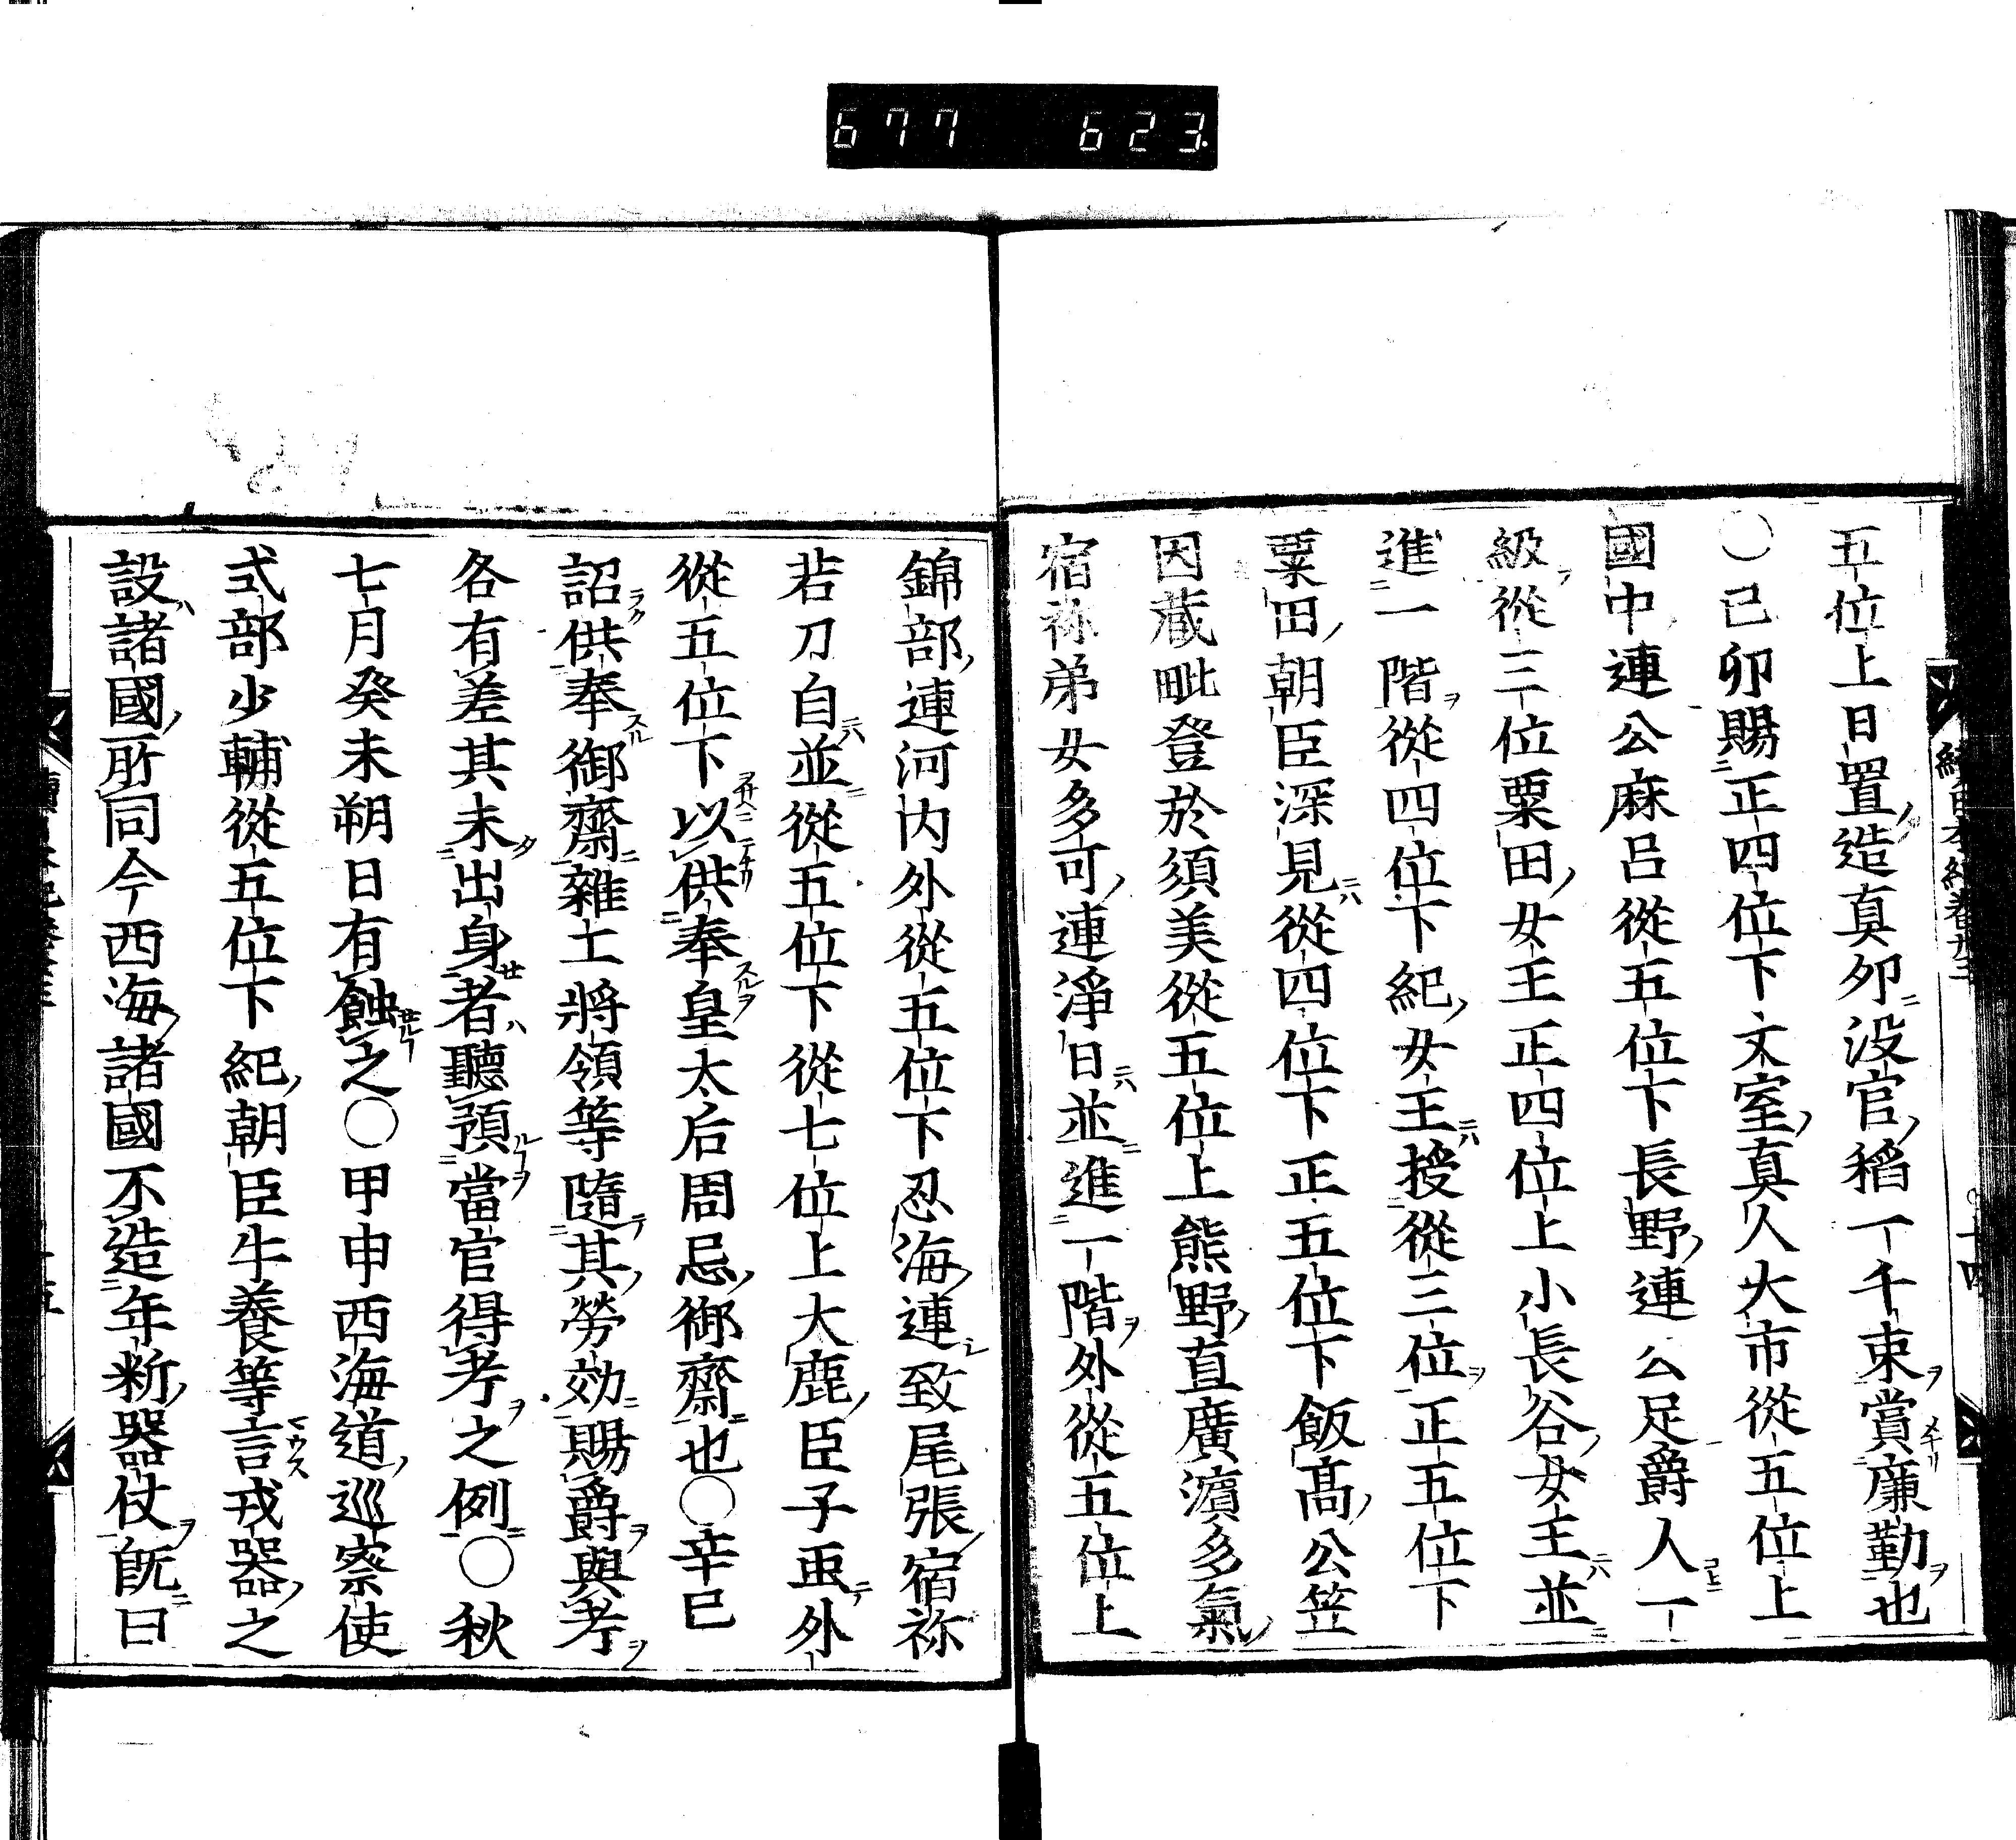 677 623
五位上日置造真夘没官稻一千束賞廉勤也
〇己卯賜正四位下文室真人大市從五位上
國中連公麻呂從五位下長野連公足爵人一
級從三位粟田女王正四位上小長谷女王並
進一階從四位下紀女王授從三位正五位下
粟田朝臣深見從四位下正五位下飯髙公笠
因蔵毗登於須美從五位上熊野直廣濱多氣
宿祢弟女多可連淨日並進一階外從五位上
錦部連河内外從五位下忍海連致尾張宿祢
若刀自並從五位下從七位上大鹿臣子虫外
從五位下以供奉皇太后周忌御齋也〇辛巳
詔供奉御齋雜士將領等隨其勞効賜爵與考
各有差其未出身者聽預當官得考之例〇秋
七月癸未朔日有蝕之〇甲申西海道巡察使
式部少輔從五位下紀朝臣牛養等言戎器之
設諸國所同今西海諸國不造年新器仗既曰